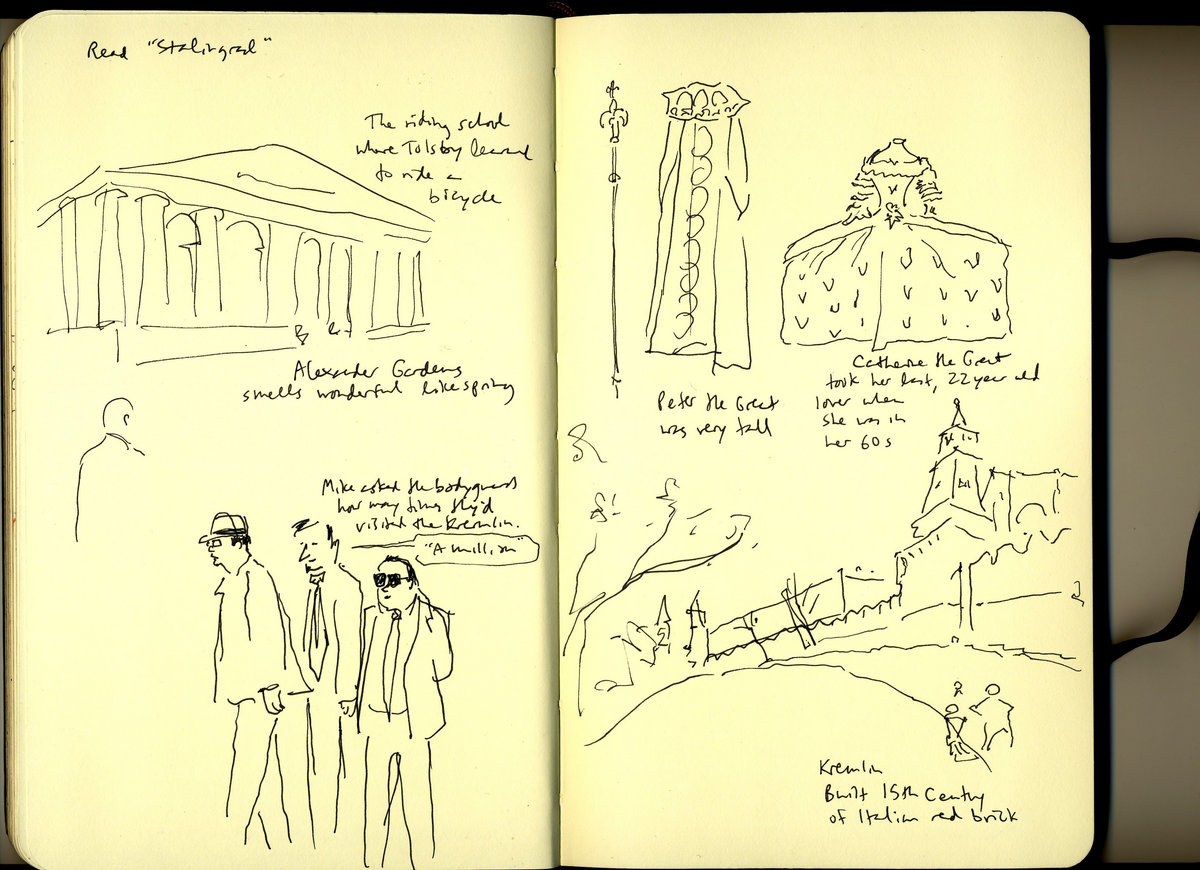 Read "Stalingrad"
The riding school
where Tolstoy learned
to ride a
bicycle
Alexander Gardens
smells wonderful like spring
Mike asked the bodyguards
how many times they'd
visited the Kremlin.
"A million"
Peter the Great
was very tall
Catherine the Great
took her last, 22 year old
lover when
she was in
her 60s
Kremlin
Built 15th Century
of Italian red brick